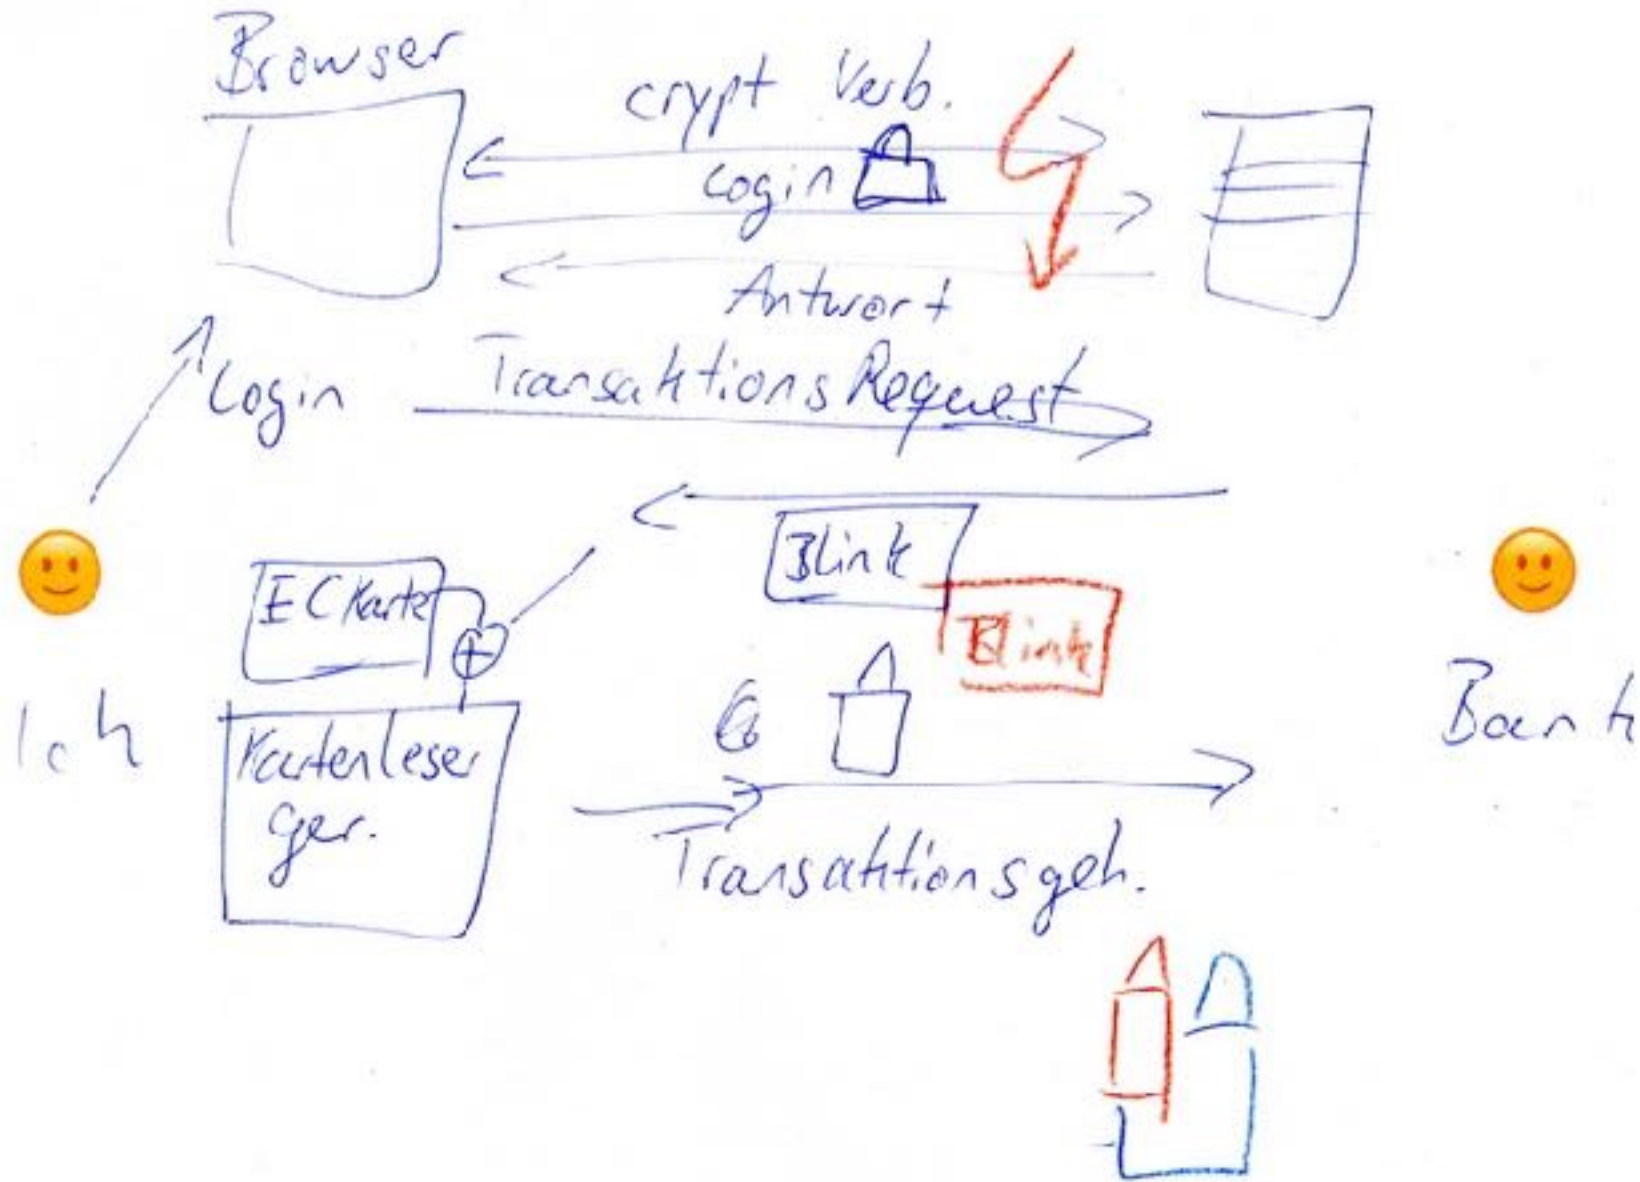 Browser
crypt Verb.
Login
Antwort
Login
TransaktionsRequest
Blink
EC Karte
Blink
Ich
Bank
Kartenleser
ger.
Transaktionsgeh.